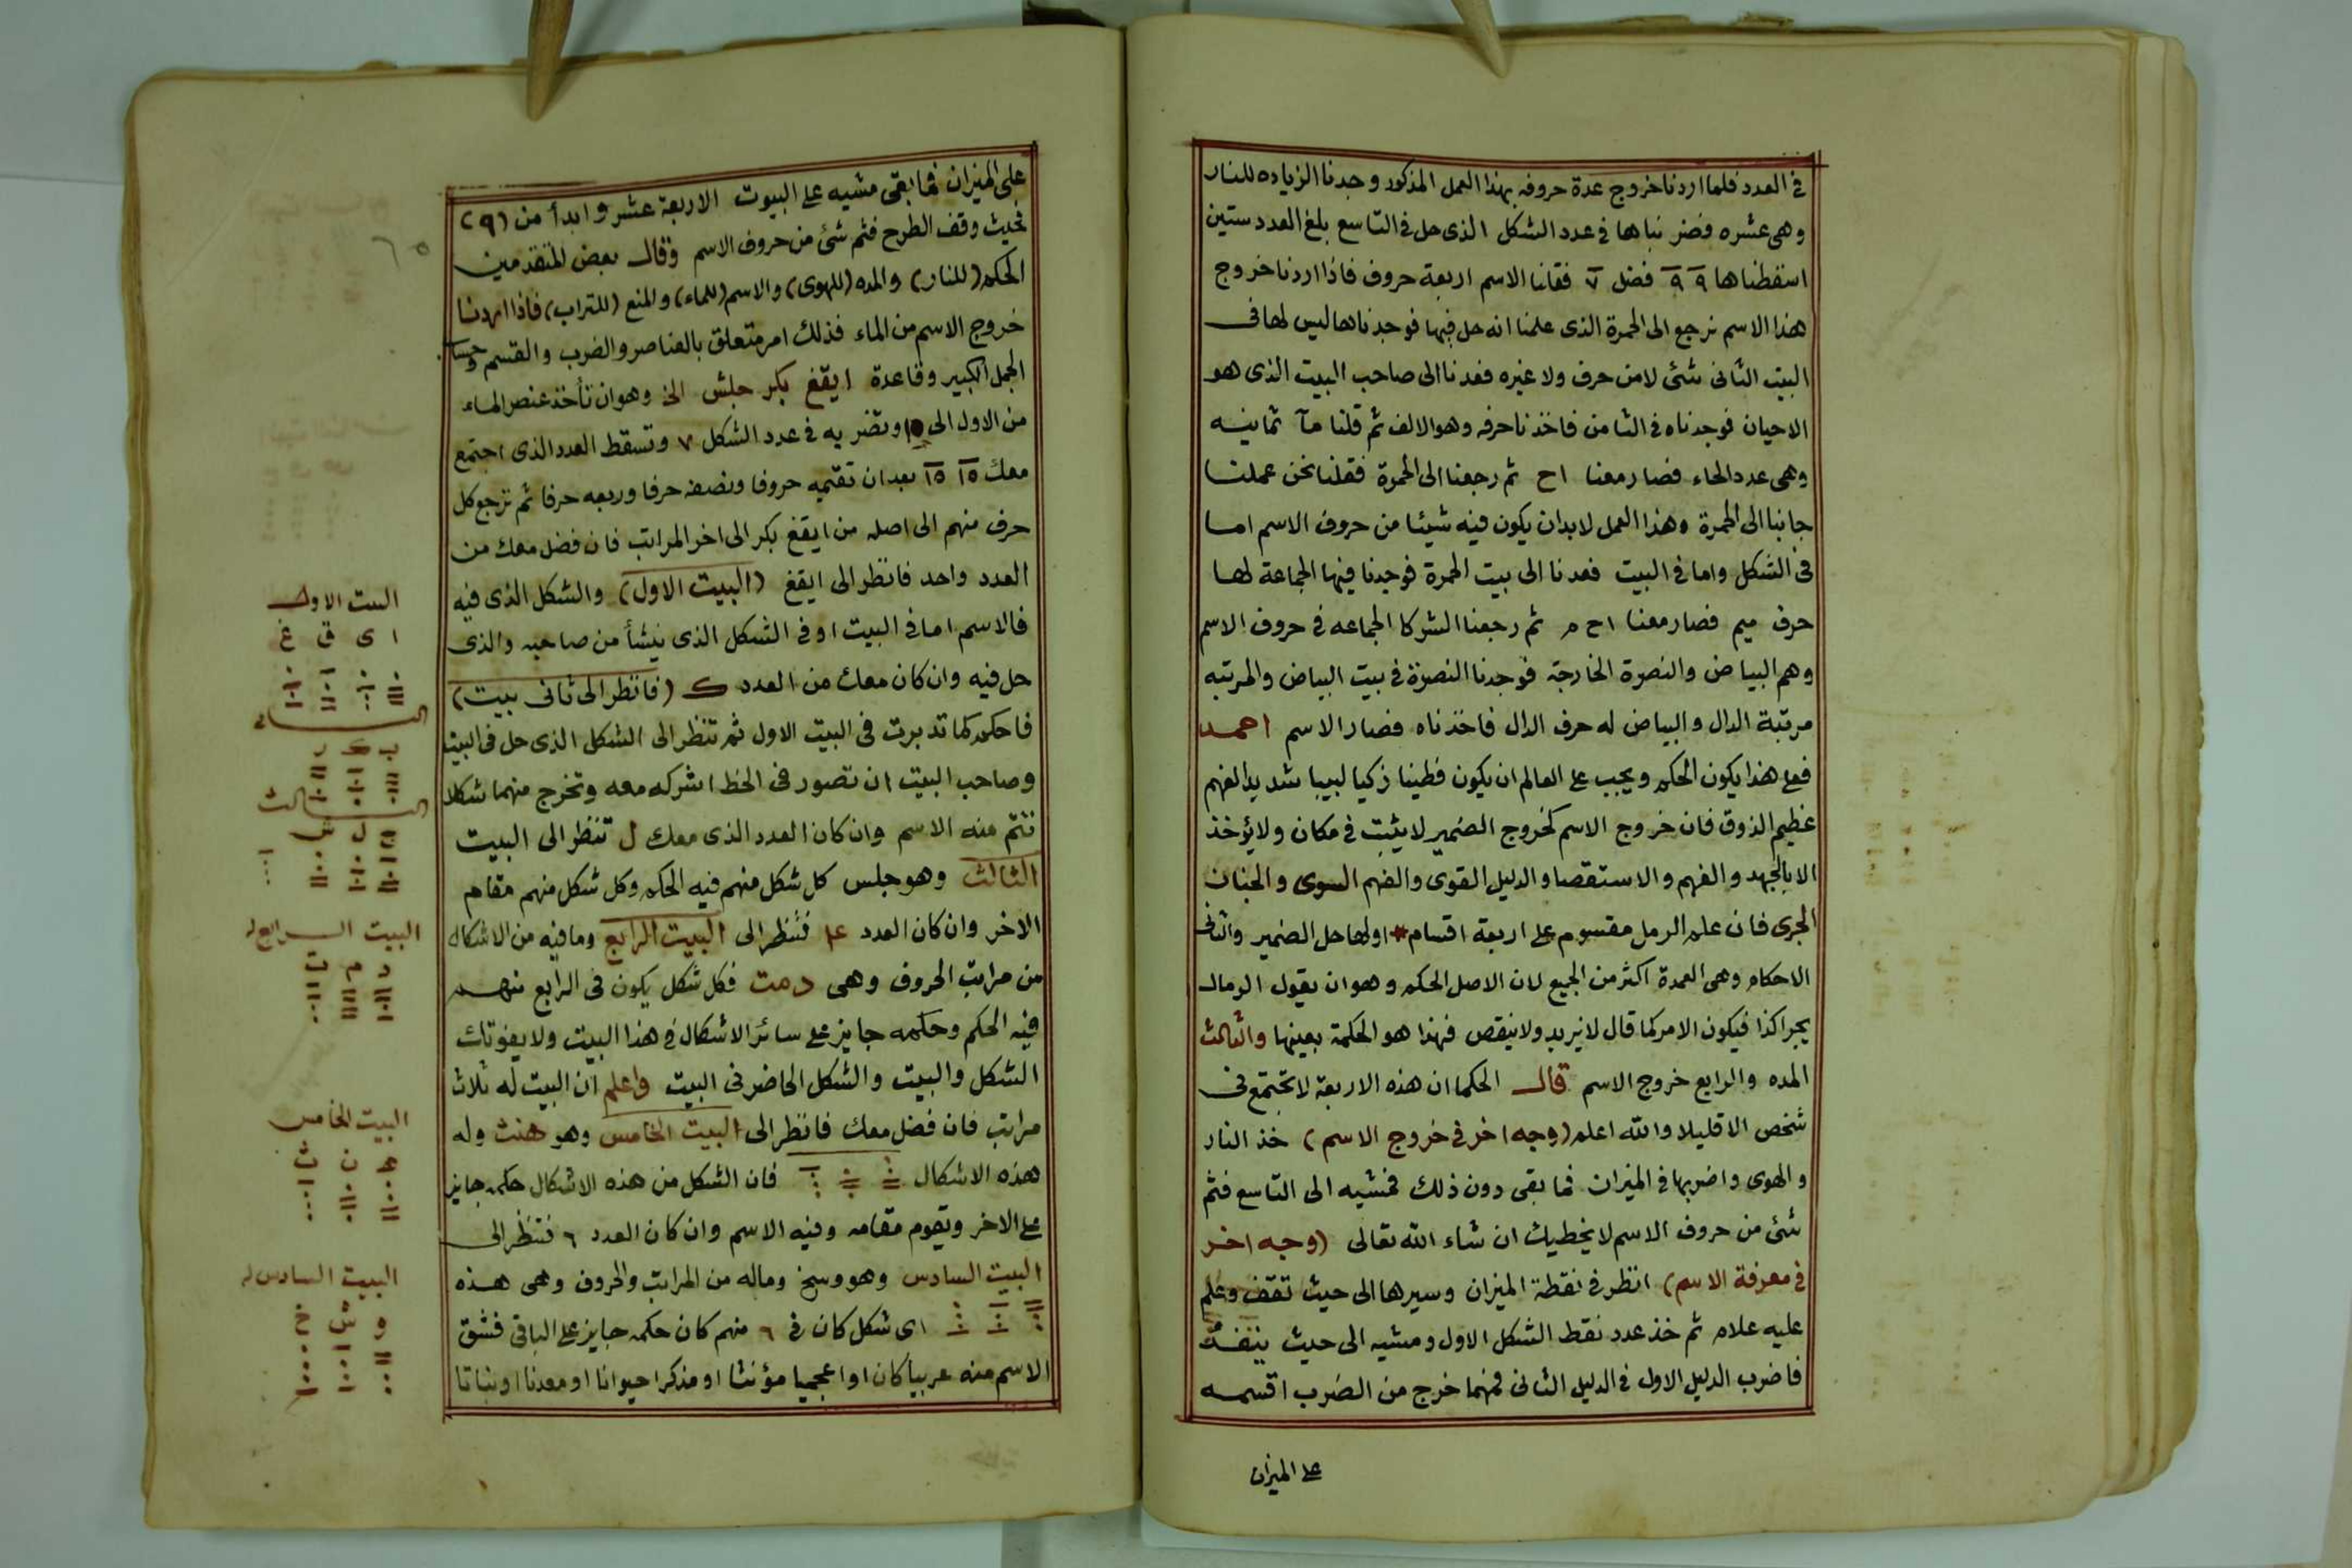 في العدد فلما اردنا خروج عدة حروفه بهذا العمل المذكور وجدنا الزياده للنار
وهي عشره فضربناها في عدد الشكل الذى حل في التاسع بلغ العدد ستين
اسقطناها ٩ ٩ فضل ٧ فقلنا الاسم اربعة حروف فاذا اردنا خروج
هذا الاسم نرجع الى الحمرة الذى علمنا انه حل فيها فوجدناها ليس لها فى
البيت الثانى شئ لامن حرف ولا غيره فعدنا الى صاحب البيت الذى هو
الاحيان فوجدناه في الثامن فاخذنا حرفه وهو الالف ثم قلنا مآ ثمانيه
وهى عدد الحاء فصار معنا اح ثم رجعنا الى الحمرة فقلنا نحن عملنا
جانبا الى الحمرة وهذا العمل لابد ان يكون فيه شيئا من حروف الاسم اما
فى الشكل واما في البيت فعدنا الى بيت الحمرة فوجدنا فيها الجماعة لها
حرف ميم فصار معنا اح م ثم رجعنا الشركا الجماعه في حروف الاسم
وهم البياض والنصرة الخارجة فوجدنا النصرة في بيت البياض والمرتبه
مرتبة الدال والبياض له حرف الدال فاخذناه فصار الاسم احمد
فعلى هذا يكون الحكم ويجب على العالم ان يكون فطينا زكيا لبيبا شديد الفهم
عظيم الذوق فان خروج الاسم كخروج الضمير لا يثبت في مكان ولا يؤخذ
الا بالجهد والفهم والاستقصا والدليل القوى والفهم السوى والجنان
الجرى فان علم الرمل مقسوم على اربعة اقسام اولها حل الضمير والثانى
الاحكام وهى العمدة اكثر من الجميع لان الاصل الحكم وهو ان يقول الرمال
يجرا كذا فيكون الامر كما قال لا يزيد ولا ينقص فهذا هو الحكمة بعينها والثالث
المده والرابع خروج الاسم قال الحكما ان هذه الاربعة لا تجتمع فى
شخص الا قليلا والله اعلم (وجه اخر في خروج الاسم) خذ النار
والهوى واضربها في الميزان فما بقى دون ذلك فمشيه الى التاسع فثم
شئ من حروف الاسم لا يخطيك ان شاء الله تعالى (وجه اخر
في معرفة الاسم) انظر في نقطة الميزان وسيرها الى حيث تقف وعلم
عليه علام ثم خذ عدد نقط الشكل الاول ومشيه الى حيث ينفذ
فاضرب الدليل الاول في الدليل الثانى فمهما خرج من الضرب اقسمه
على الميزان
على الميزان فما بقى مشيه على البيوت الاربعة عشر وابدأ من (٩)
فحيث وقف الطرح فثم شئ من حروف الاسم وقال بعض المتقدمين
الحكم (للنار) والمده (للهوى) والاسم (للماء) والمنع (للتراب) فاذا اردنا
خروج الاسم من الماء فذلك امر متعلق بالعناصر والضرب والقسم وحساب
الجمل الكبير وقاعدة ايقغ بكر جلش الخ وهو ان تأخذ عنصر الماء
من الاول الى ١٥ وتضربه في عدد الشكل ٧ وتسقط العدد الذى اجتمع
معك ١٥ ١٥ بعد ان تقيمه حروفا ونصفه حرفا وربعه حرفا ثم ترجع كل
حرف منهم الى اصله من ايقغ بكر الى اخر المراتب فان فضل معك من
العدد واحد فانظر الى ايقغ (البيت الاول) والشكل الذى فيه
فالاسم اما في البيت او في الشكل الذى ينشأ من صاحبه والذى
حل فيه وان كان معك من العدد ك (فانظر الى ثانى بيت)
فاحكم كما تدبرت فى البيت الاول ثم تنظر الى الشكل الذى حل فى البيت
وصاحب البيت ان تصور فى الخط اشركه معه وتخرج منهما شكلا
فتم منه الاسم وان كان العدد الذى معك ل تنظر الى البيت
الثالث وهو جلس كل شكل منهم فيه الحكم وكل شكل منهم مقام
الاخر وان كان العدد فتنظر الى البيت الرابع وما فيه من الاشكال
من مراتب الحروف وهى دمت فكل شكل يكون فى الرابع منهم
فيه الحكم وحكمه جايز على سائر الاشكال في هذا البيت ولا يفوتك
الشكل والبيت والشكل الحاضر فى البيت واعلم ان البيت له ثلاث
مراتب فان فضل معك فانظر الى البيت الخامس وهو هنث وله
هذه الاشكال فان الشكل من هذه الاشكال حكمه جايز
على الاخر ويقوم مقامه وفيه الاسم وان كان العدد ٦ فتنظر الى
البيت السادس وهو وسخ وماله من المراتب والحروف وهى هذه
اى شكل كان في ٦ منهم كان حكمه جايز على الباقى فشق
الاسم منه عربيا كان او اعجميا مؤنثا او مذكرا حيوانا او معدنا او نباتا
٦٥
البيت الاول
ا ى ق غ
ب ك ر
الثالث
ج ل ش
البيت الرابع
د م ت
البيت الخامس
ه ن ث
البيت السادس
و س خ